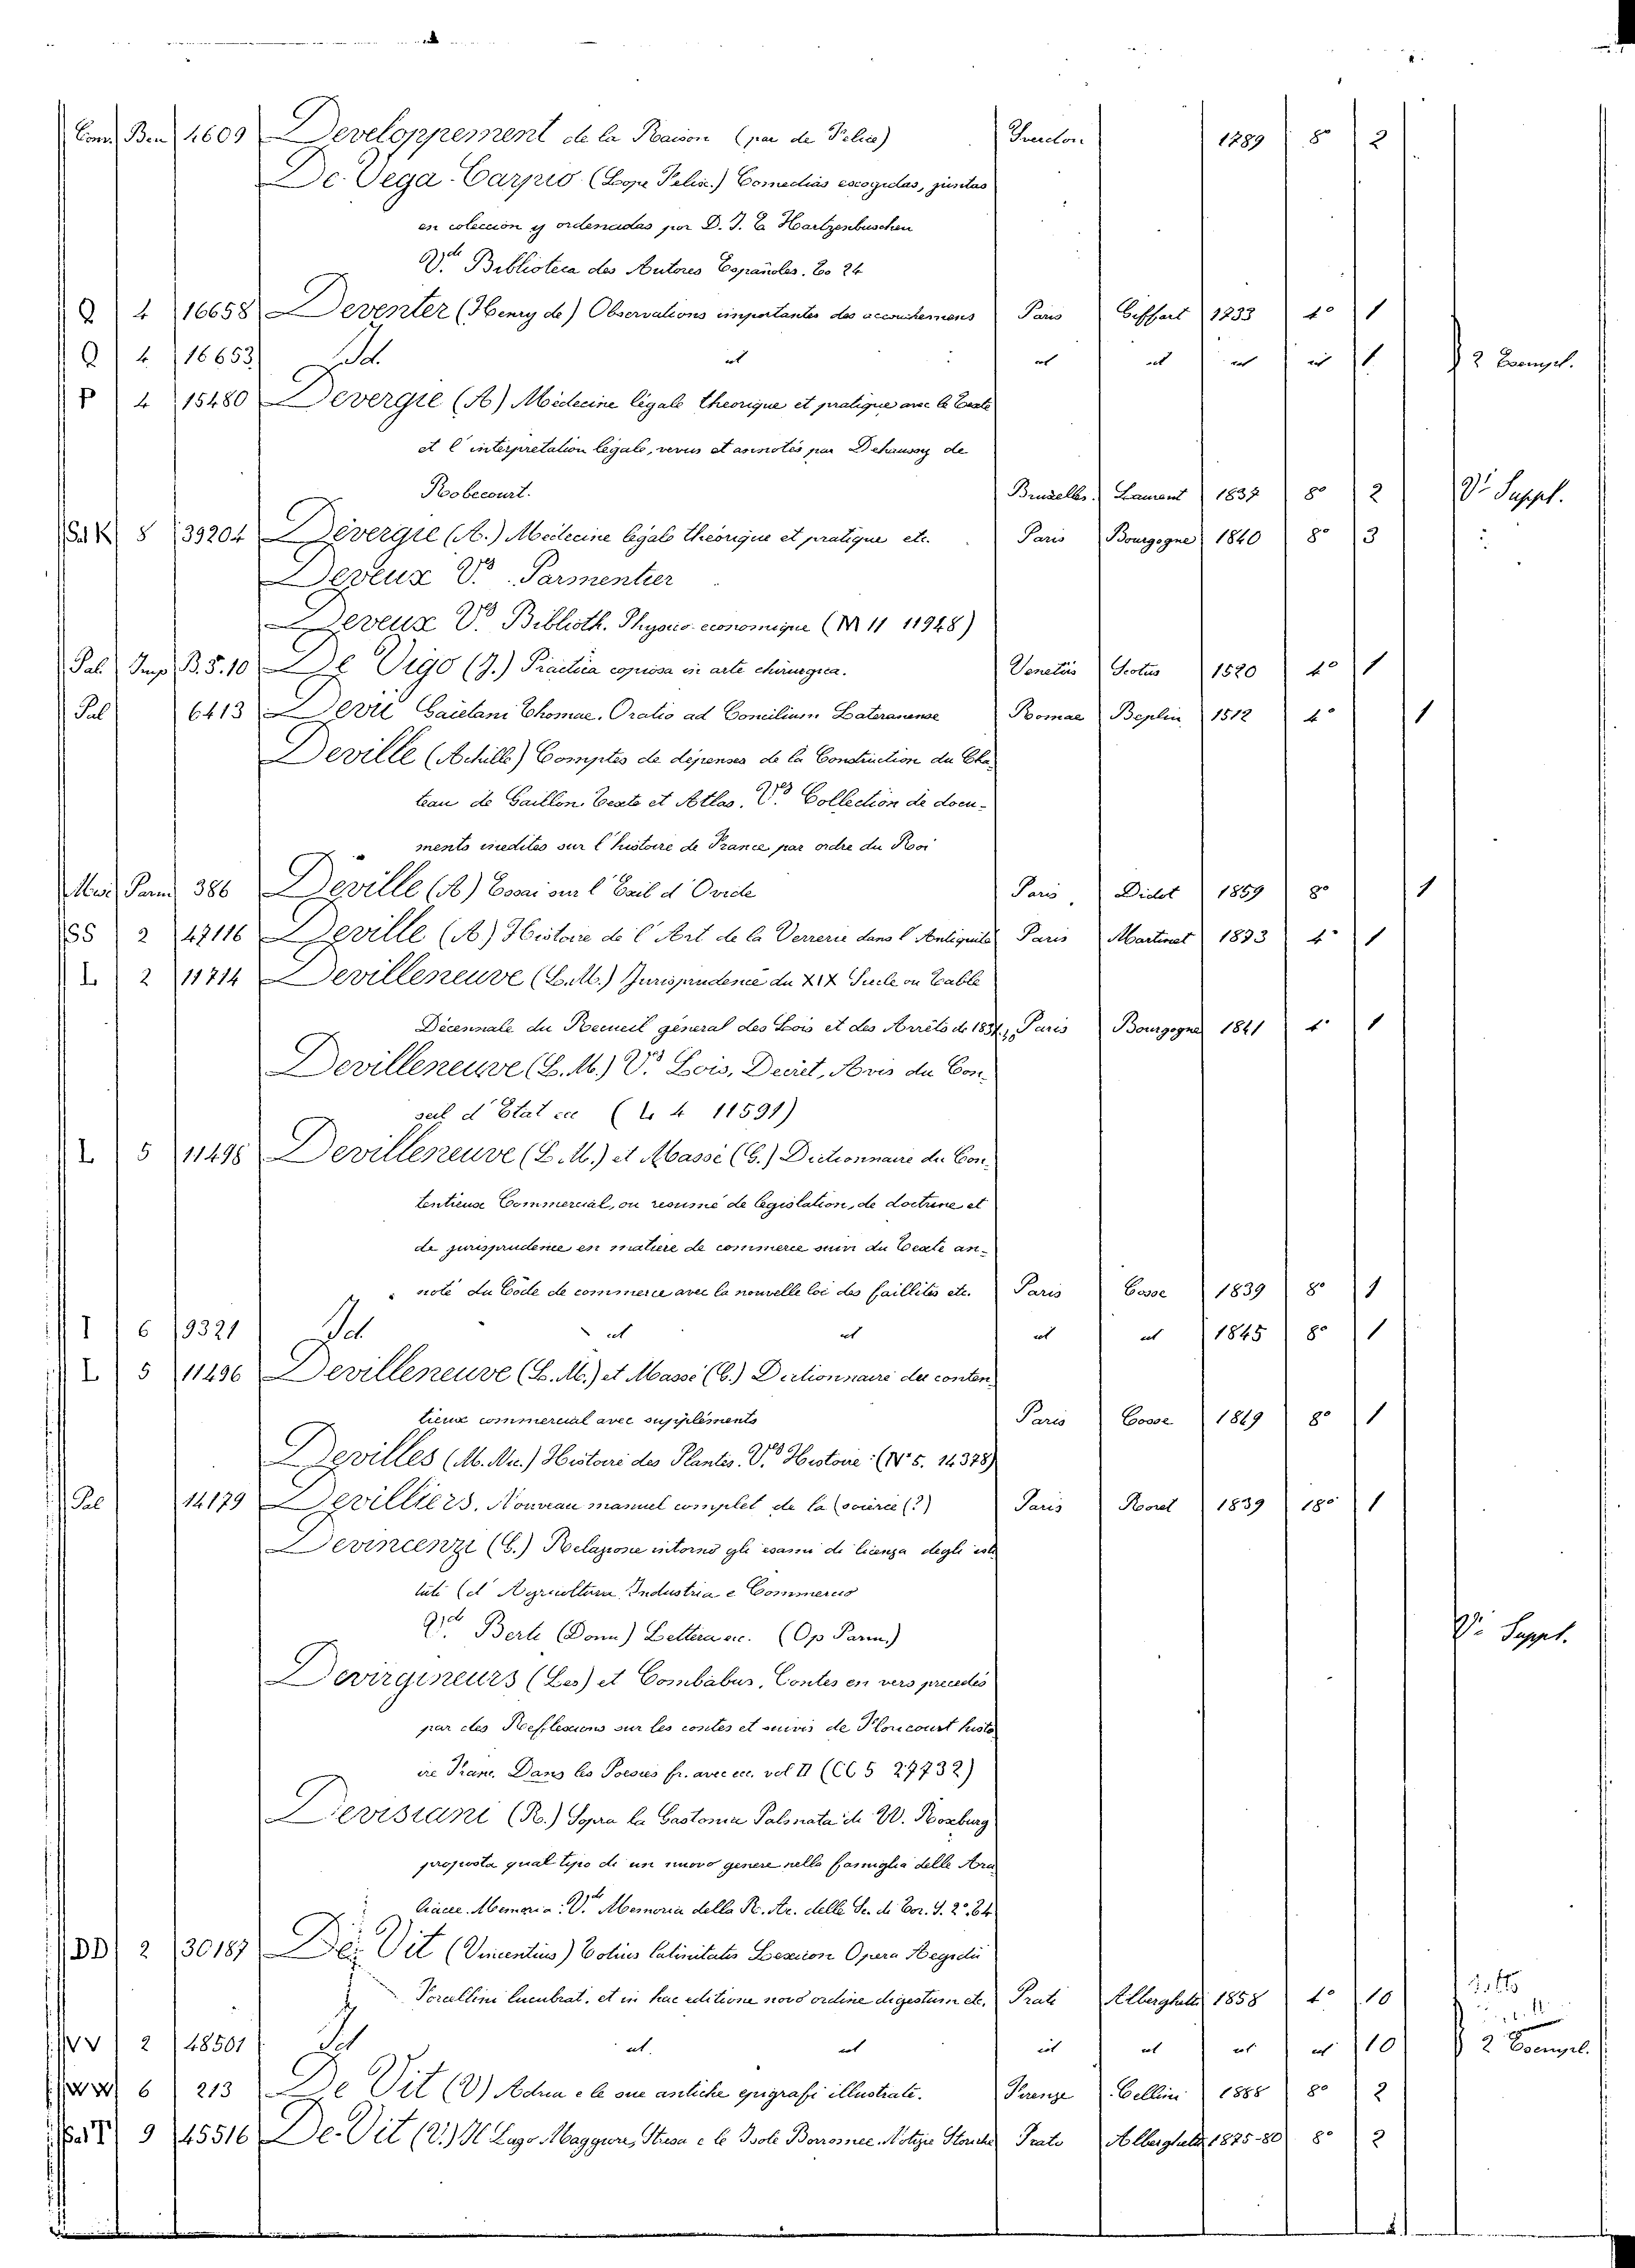 Conv. Ben 4609 Developpement de la Raison (par de Felice) Yverdon 1789 8° 2
De-Vega-Carpio (Lope Felix.) Comedias escogidas, juntas
en coleccion y ordenadas por D. J. E. Hartzenbuschen
V.de Biblioteca des Autores Españoles. To 24
Q 4 16658 Deventer (Henry de) Observations importantes des accouchemens Paris Giffart 1733 4° 1
Q 4 16653 Id. id id id id id 1 2 Esempl.
P 4 15480 Devergie (A) Médecine légale theorique et pratique avec le Texte
et l'interpretation légale, revus et annotés par Dehaussy de
Robecourt. Bruxelles. Laurent 1837 8° 2 V.i Suppl.
Sal K 8 39204 Dévergie (A.) Médecine légale théorique et pratique etc. Paris Bourgogne 1840 8° 3
Deveux V.es Parmentier
Deveux V.es Biblioth. Physico-economique (M 11 11948)
Pal. Imp B.5.10 De Vigo (J.) Practica copiosa in arte chirurgica. Venetiis Scotus 1520 4° 1
Pal 6413 Devii Caietani Thomae. Oratio ad Concilium Lateranense Romae Beplin 1512 4° 1
Deville (Achille) Comptes de dépenses de la Construction du Cha-
teau de Gaillon. Texte et Atlas. V.es Collection de docu-
ments inedites sur l'histoire de France par ordre du Roi
Misc Parm 386 Deville (A) Essai sur l'Exil d'Ovide Paris Didot 1859 8° 1
SS 2 47116 Deville (A) Histoire de l'Art de la Verrerie dans l'Antiquité Paris Martinet 1873 4° 1
L 2 11714 Devilleneuve (L.M.) Jurisprudence du XIX Siecle ou Table
Décennale du Recueil général des Lois et des Arrêts de Paris Bourgogne 1841 4° 1
Devilleneuve (L.M.) V.es Lois, Decret, Avis du Con-
seil d'Etat ecc (L 4 11591)
L 5 11498 Devilleneuve (L.M.) et Massé (G.) Dictionnaire du Con-
tentieux Commercial, ou resumé de legislation, de doctrine et
de jurisprudence en matiere de commerce suivi du Texte an-
noté du Code de commerce avec la nouvelle loi des faillites etc. Paris Cosse 1839 8° 1
I 6 9321 Id. id id id id 1845 8° 1
L 5 11496 Devilleneuve (L.M.) et Massé (G.) Dictionnaire du conten-
tieux commercial avec suppléments Paris Cosse 1849 8° 1
Devilles (M. Nic.) Histoire des Plantes. V.es Histoire (N 5. 14378)
Pal 14179 Devilliers. Nouveau manuel complet de la soierie (?) Paris Roret 1839 18° 1
Devincenzi (G.) Relazione intorno gli esami di licenza degli isti
tuti (d'Agricoltura Industria e Commercio
V.de Berti (Dom) Lettera ecc. (Op Parm.) V.i Suppl.
Devirgineurs (Les) et Combabus, Contes en vers precedés
par des Reflexions sur les contes et suivis de Floricourt histo
ire Franc. Dans les Poesies fr. avec ecc. vol II (CC 5 27732)
Devisiani (R.) Sopra la Gastonia Palmata di W. Roxburg
proposta qual tipo di un nuovo genere nella famiglia delle Ara
liacee. Memoria. V.de Memoria della R. Ac. delle Sc. di Tor. S. 2a T4
DD 2 30187 De-Vit (Vincentius) Totius latinitatis Lexicon Opera Aegidii
Forcellini lucubrat. et in hac editione novo ordine digestum etc. Prati Alberghetti 1858 4° 10
VV 2 48501 Id id. id id id id id 10 2 Esempl.
WW 6 213 De Vit (V) Adria e le sue antiche epigrafi illustrate. Firenze Cellini 1888 8° 2
Sal T 9 45516 De-Vit (V.) Il Lago Maggiore, Stresa e le Isole Borromee. Notizie Storiche Prato Alberghetti 1875-80 8° 2